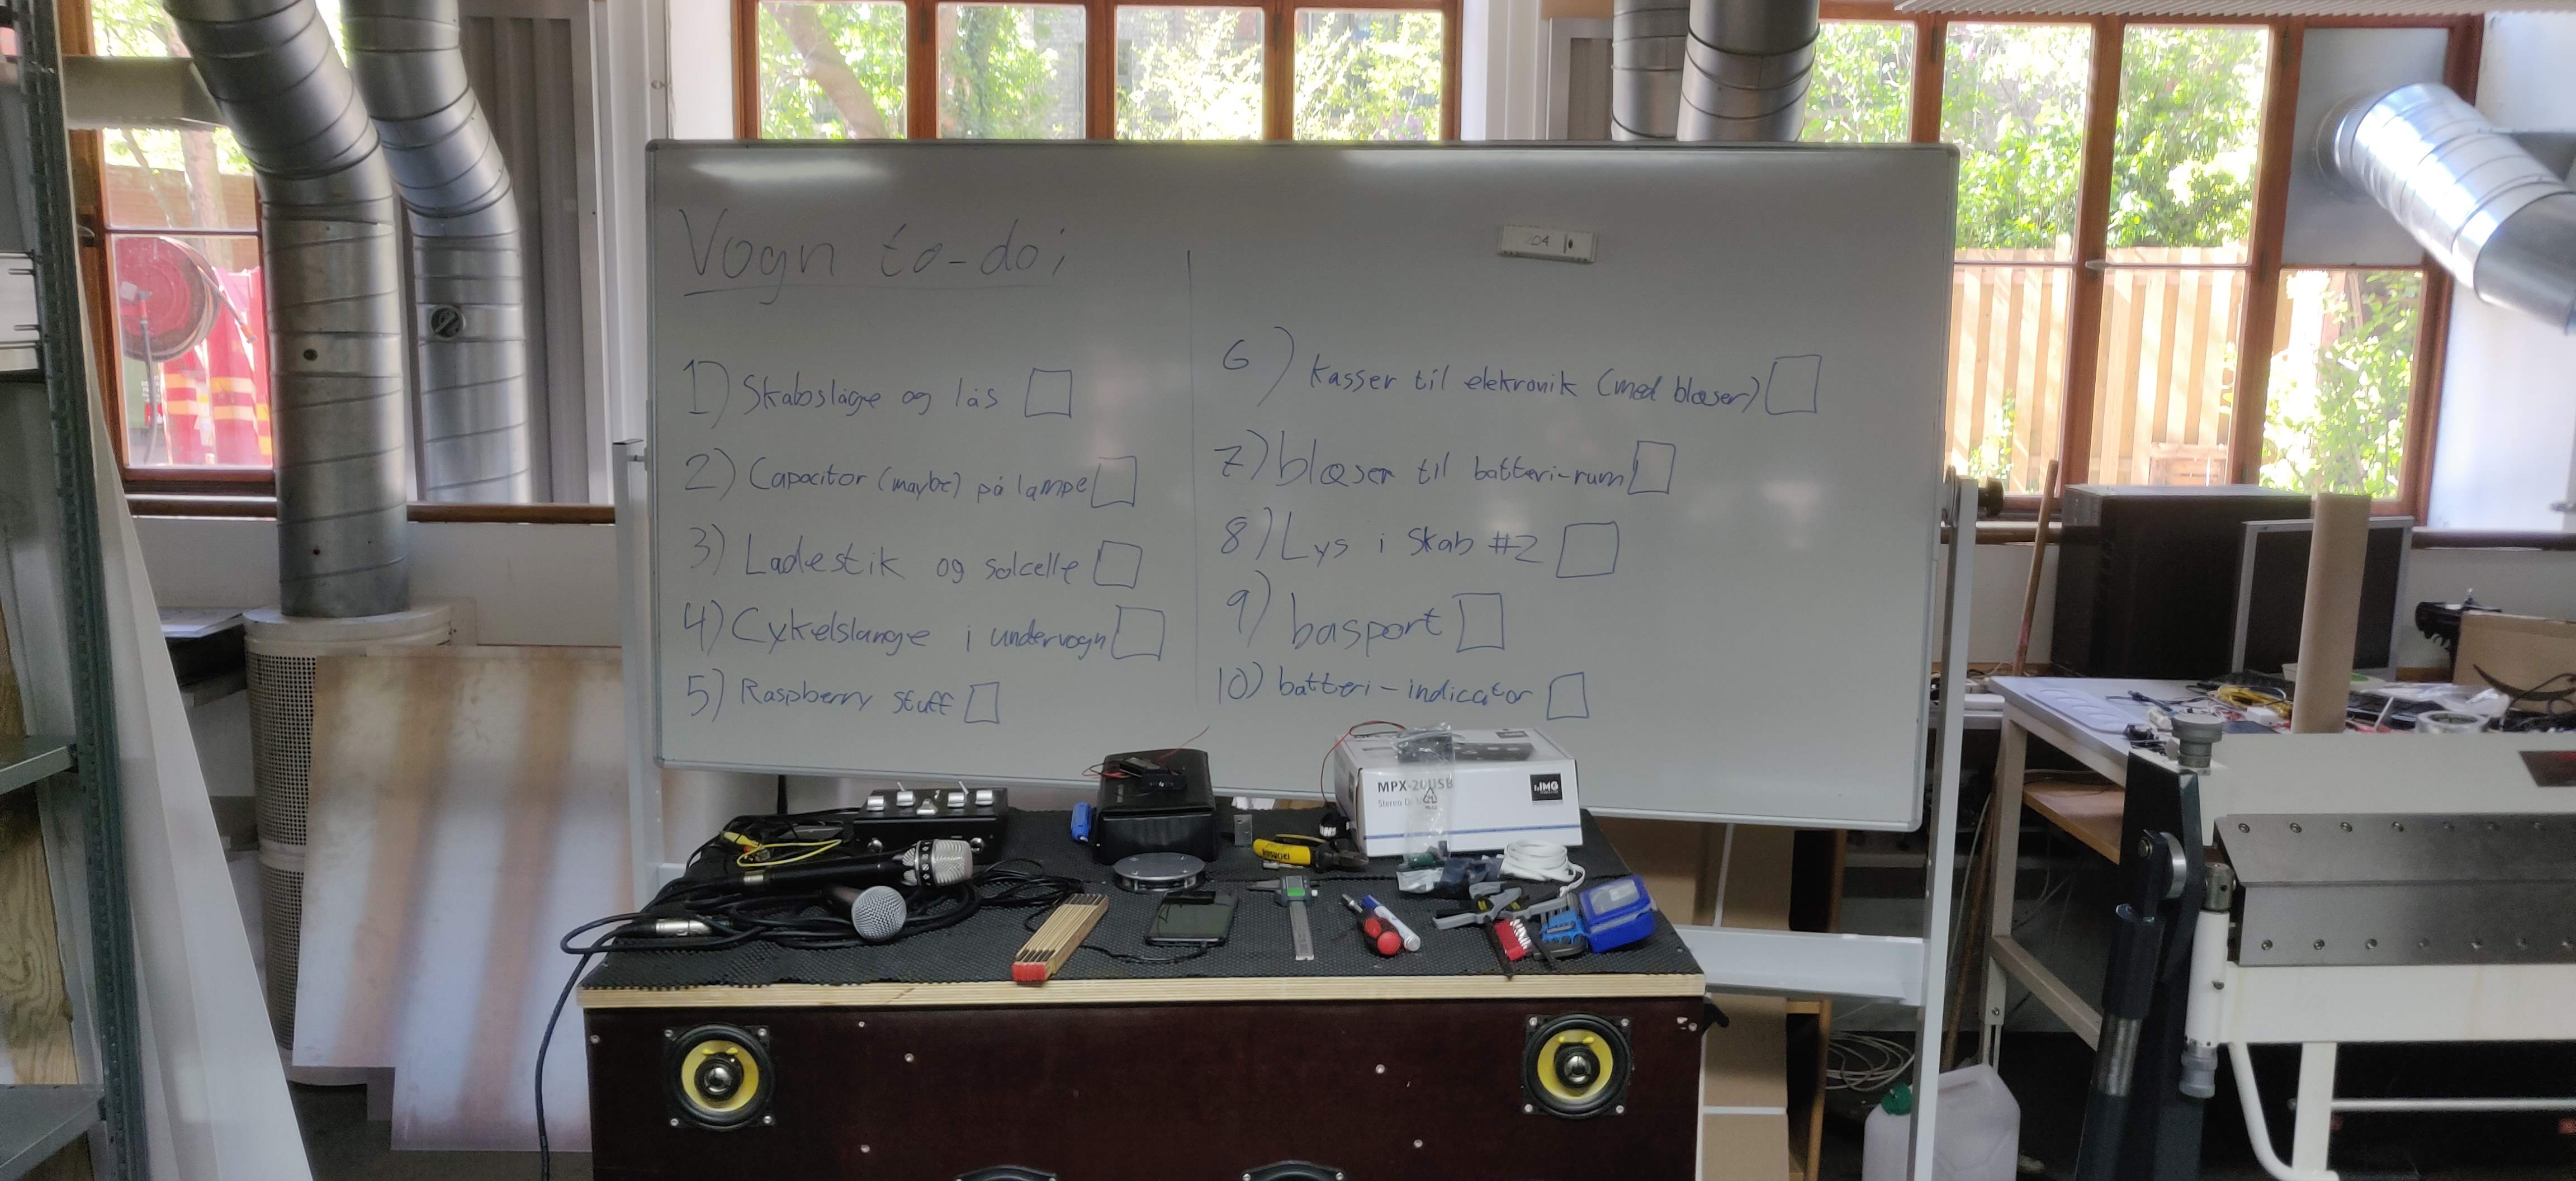 Vogn to-do:
1) Skabslåge og lås
2) Capacitor (maybe) på lampe
3) Ladestik og solcelle
4) Cykelslange i undervogn
5) Raspberry stuff
204
6) Kasser til elektronik (med blæser)
7) blæser til batteri-rum
8) Lys i skab #2
9) basport
10) batteri-indicator
MPX-20USB
Stereo D
IMG